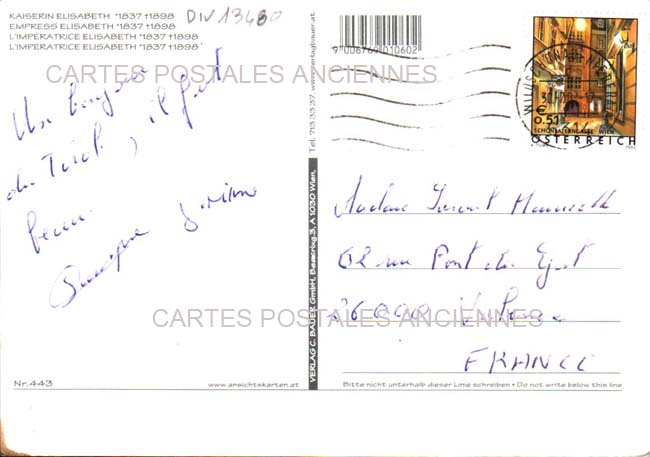 KAISERIN ELISABETH *1837 †1898
EMPRESS ELISABETH *1837 †1898
L'IMPÉRATRICE ELISABETH *1837 †1898
L'IMPERATRICE ELISABETH *1837 †1898
DIV 13480
9006769010602
€ 0,51
SCHÖNLATERNGASSE WIEN
2002
ÖSTERREICH
CARTES POSTALES ANCIENNES
Un
du Tirol, il fait
beau.
Tel. 713 33 37. www.verlagbauer.at
VERLAG C. BAUER GmbH, Beatrixg.3, A 1030 Wien,
Madame
62 rue Pont du
26000 Valence
FRANCE
CARTES POSTALES ANCIENNES
Nr.443
www.ansichtskarten.at
Bitte nicht unterhalb dieser Linie schreiben • Do not write below this line